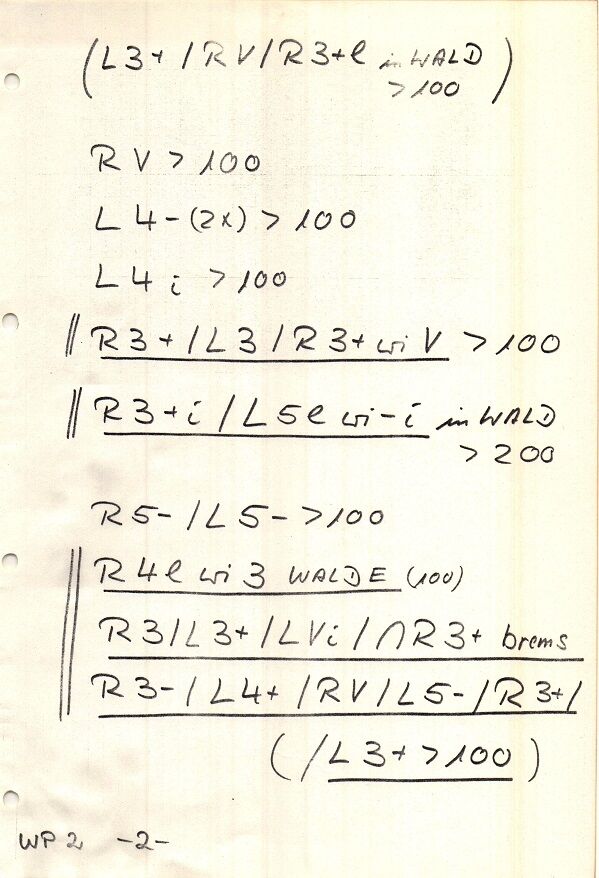 (L3+/RV/R3+l in WALD
>100)
RV>100
L4-(2x)>100
L4i >100
R3+/L3/R3+wi V >100
R3+i/L5l wi-i in WALD
>200
R5-/L5->100
R4l wi 3 WALDE (100)
R3/L3+/LVi/∩R3+ brems
R3-/L4+/RV/L5-/R3+/
(/L3+>100)
WP2 -2-